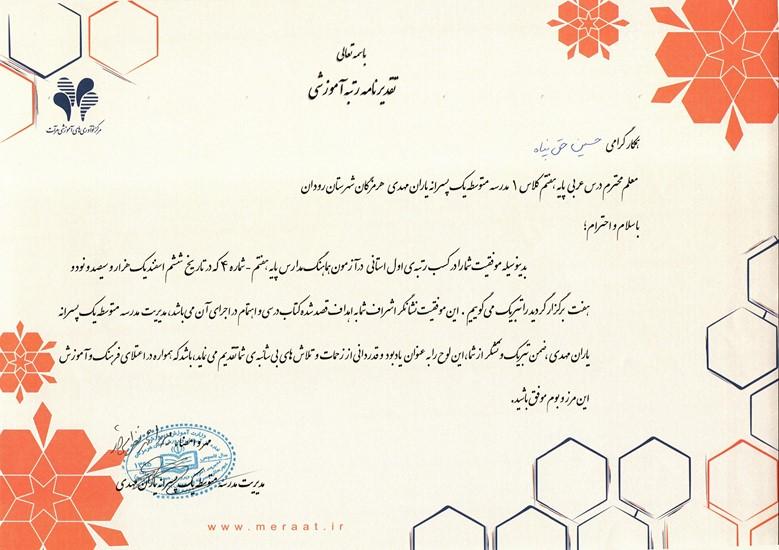 باسمه تعالی
تقدیرنامه رتبه آموزشی
مرکز نوآوری‌های آموزشی مرآت
همکار گرامی حسین حق پناه
معلم محترم درس عربی پایه هفتم کلاس ۱ مدرسه متوسطه یک پسرانه یاران مهدی هرمزگان شهرستان رودان
با سلام و احترام؛
بدینوسیله موفقیت شما را در کسب رتبه‌ی اول استانی در آزمون هماهنگ مدارس پایه هفتم - شماره ۴ که در تاریخ ششم اسفند یک هزار و سیصد و نود و
هفت برگزار گردید را تبریک می گوییم . این موفقیت نشانگر اشراف شما به اهداف قصد شده کتاب درسی و اهتمام در اجرای آن می باشد، مدیریت مدرسه متوسطه یک پسرانه
یاران مهدی، ضمن تبریک و تشکر از شما، این لوح را به عنوان یادبود و قدردانی از زحمات و تلاش های بی شائبه‌ی شما تقدیم می نماید، باشد که همواره در اعتلای فرهنگ و آموزش
این مرز و بوم موفق باشید.
مهر و امضاء
مدیریت مدرسه متوسطه یک پسرانه یاران مهدی
www.meraat.ir